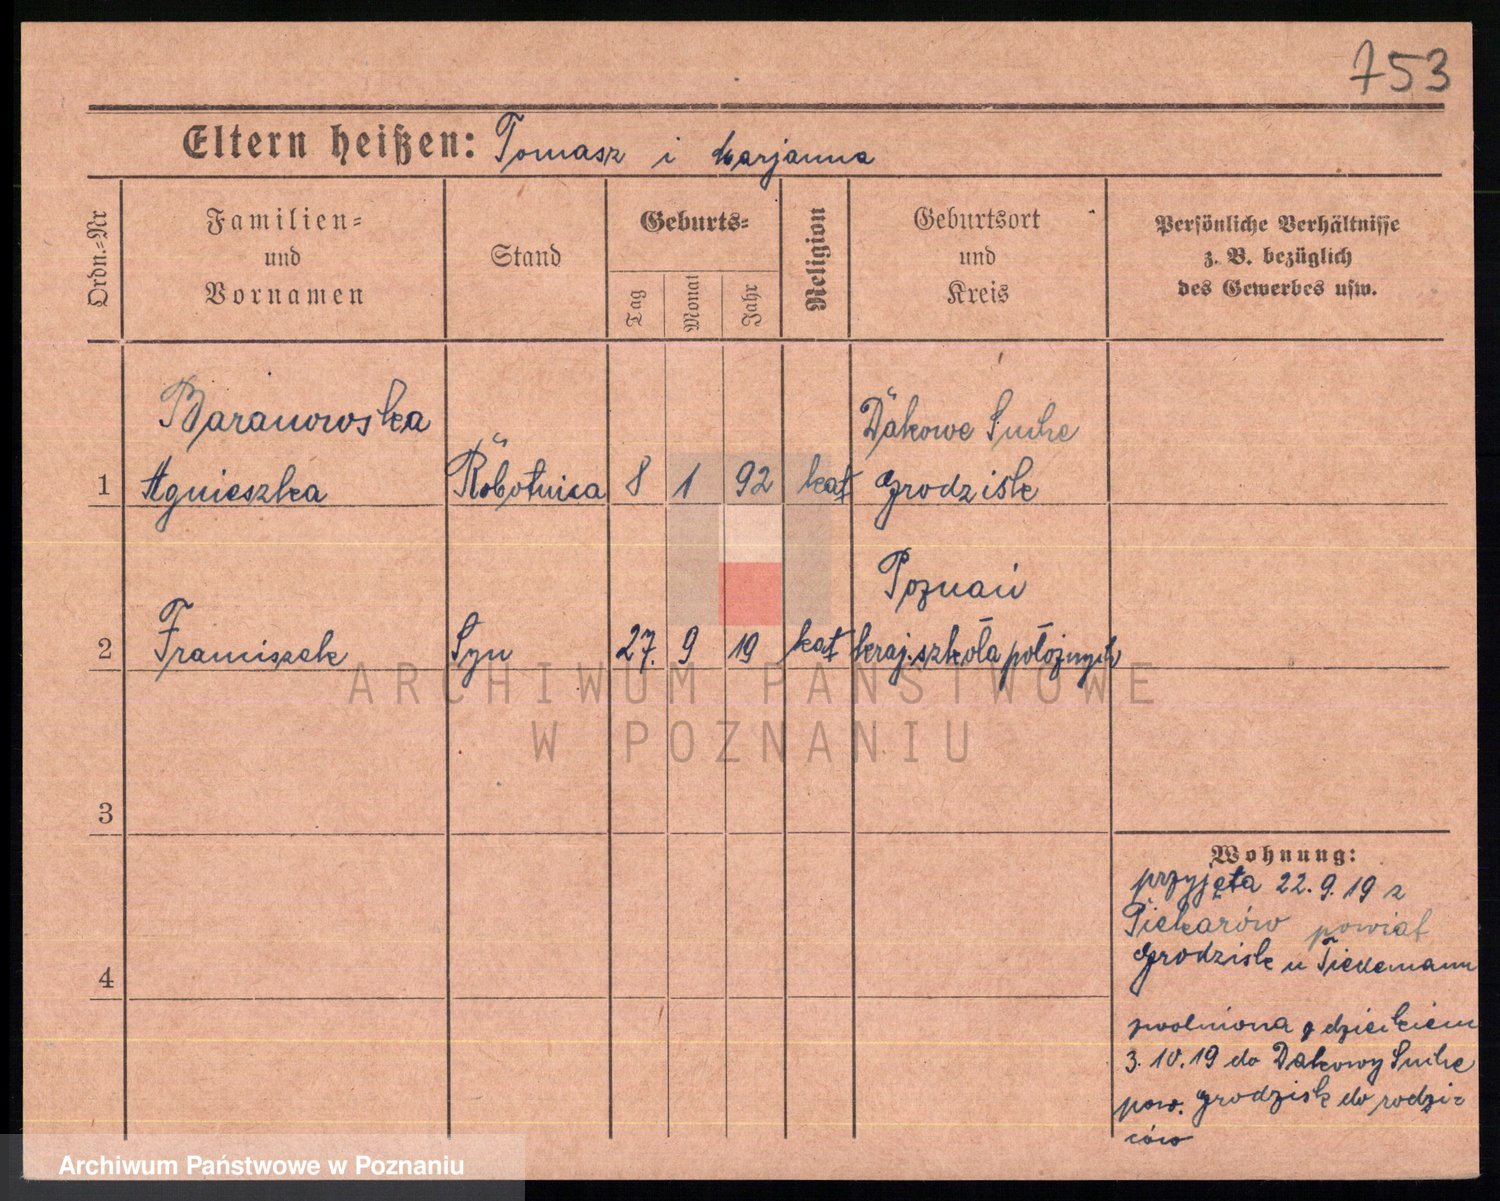 753
Eltern heißen: Tomasz i Marjanna
Ordn.=Nr
Familien=
und
Vornamen
Stand
Geburts=
Tag
Monat
Jahr
Religion
Geburtsort
und
Kreis
Persönliche Verhältnisse
z. B. bezüglich
des Gewerbes usw.
Baranowska Dakowe Suche
1 Agnieszka Robotnica 8 1 92 kat Grodzisk
Poznań
2 Franciszek Syn 27. 9 19 kat kraj. szkoła położnych
ARCHIWUM PAŃSTWOWE
W POZNANIU
3
4
Wohnung:
przyjęta 22. 9. 19 z
Piekarów powiat
Grodzisk u Tiedemann
zwolniona z dzieckiem
3. 10. 19 do Dakowy Suche
pow. Grodzisk do rodzi=
ców
Archiwum Państwowe w Poznaniu